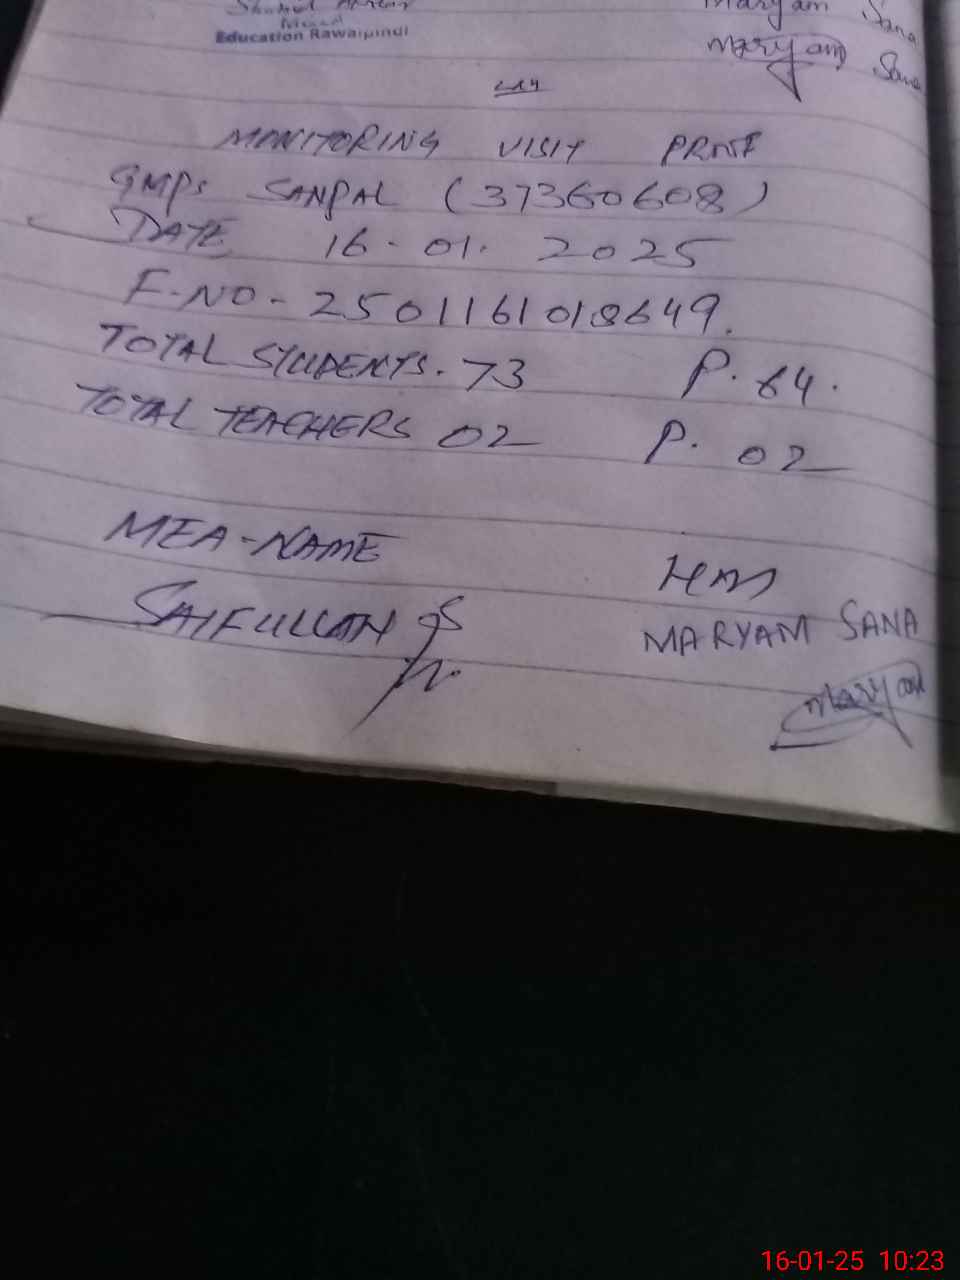 Maryam Sana
Education Rawalpindi
Maryam Sana
MONITORING VISIT PROOF
GMPS SANPAL (37360608)
DATE 16-01-2025
F-NO-2501161018649.
TOTAL STUDENTS. 73 P. 64.
TOTAL TEACHERS 02 P. 02
MEA-NAME HM
SAIFULLAH MARYAM SANA
Maryam
16-01-25 10:23